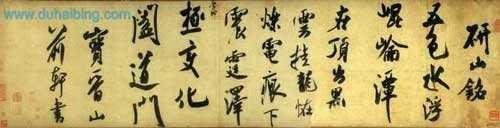 www.duhaibing.com
研山銘
五色水浮
崐崘潭
在頂出黑
雲挂龍怪
爍電痕下
震霆澤
極變化
闔道門
寶晉山
前軒書